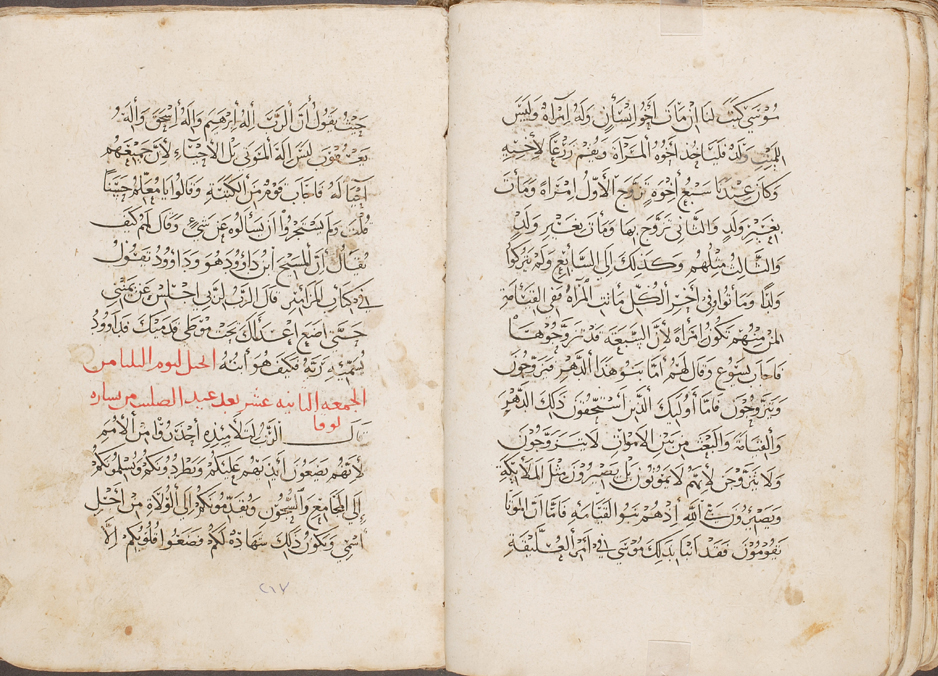 موسي كتب لنا ان مات اخوا انسان وله امراة وليس
للميت ولد فلياخد اخوه المراة ويقيم زرعا لاخيه
وكان عندنا سبع اخوة تزوج الاول امراة ومات
بغير ولد والثاني تزوج بها ومات بغير ولد
والثالث مثلهم وكدلك الي السابع ولم يتركوا
ولدا وماتوا وفي اخر الكل ماتت المراة ففي القيامة
لمن منهم تكون امراة لان السبعة قد تزوجوها
فاجاب يسوع وقال لهم اما بنو هدا الدهر فيتزوجون
ويتزوجون فاما أوليك الدين استحقون دلك الدهر
والقيامة والبعث من بين الاموات لا يتزوجون
ولا يتزوجن لانهم لا يموتون بل يصيرون مثل الملايكة
ويصيرون بني الله اد هم بنو القيامة فاما ان الموتا
يقومون فقد انبا بدلك موسي في أمر العليقة
حيث يقول أن الرب اله ابرهيم واله اسحق واله
يعقوب ليس اله الموتي بل الاحياء لان جميعهم
احيا له فاجاب قوم من الكتبة وقالوا يا معلم حسنا
قلت ولم يستجروا ان يسالوه عن شيء وقال لهم كيف
يقال أن المسيح ابن داوود هو وداوود يقول
في كتاب المزامير قال الرب لربي اجلس عن يميني
حتي اضع اعداك تحت موطي قدميك فداوود
يسميه ربه فكيف هو أبنه الحل ليوم الثلثا من
الجمعه الثانيه عشر بعد عيد الصلب من بشاره
لوقا
قال الرب لتلاميده احدروا من الأمم
لانهم يضعون أيديهم عليكم ويطردونكم ويسلمونكم
إلي المجامع والسجون ويقدمونكم الي الولاة من أجل
اسمي ويكون دلك شهادة لكم فضعوا قلوبكم الا
٢١٧